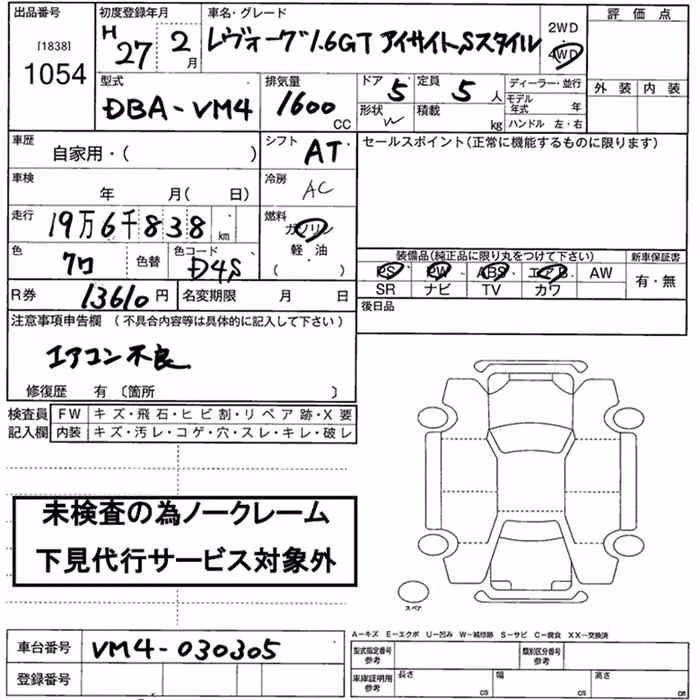 出品番号 初度登録年月 車名・グレード 評価点
[1838] H27年 2月 レヴォーグ1.6GT アイサイトSスタイル 2WD・4WD
1054
型式 排気量 ドア 定員 ディーラー・並行 外装 内装
DBA-VM4 1600CC 5 5人 モデル年式 年
形状 W 積載 kg ハンドル 左・右
車歴 シフト セールスポイント(正常に機能するものに限ります)
自家用・( ) AT
車検 冷房
年 月( 日) AC
走行 燃料
19万6千838km ガソリン
色 色替 色コード 軽油 装備品(純正品に限り丸をつけて下さい) 新車保証書
クロ D4S ( ) PS PW ABS エアB AW 有・無
SR ナビ TV カワ
R券 13610円 名変期限 月 日 後日品
注意事項申告欄 (不具合内容等は具体的に記入して下さい)
エアコン不良
修復歴 有 〔箇所 〕
検査員 FW キズ・飛石・ヒビ割・リペア跡・X要
記入欄 内装 キズ・汚レ・コゲ・穴・スレ・キレ・破レ
未検査の為ノークレーム
下見代行サービス対象外
スペア
A－キズ E－エクボ U－凹み W－補修跡 S－サビ C－腐食 XX－交換済
車台番号 VM4-030305 型式指定番号 参考 類別区分番号 参考
登録番号 車庫証明用 参考 長さ cm 幅 cm 高さ cm